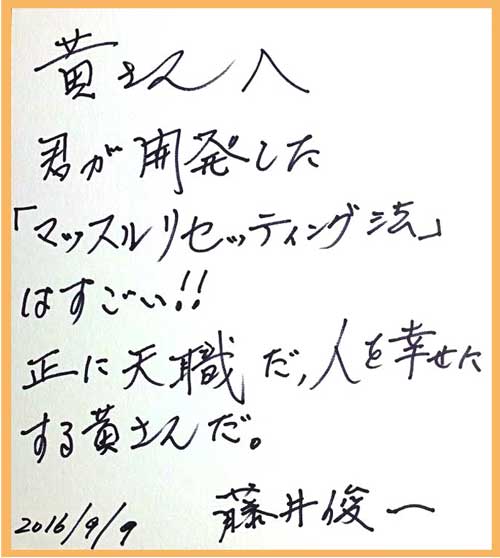 黄さんへ
君が開発した
「マッスルリセッティング法」
はすごい!!
正に天職だ,人を幸せに
する黄さんだ。
2016/9/9 藤井俊一